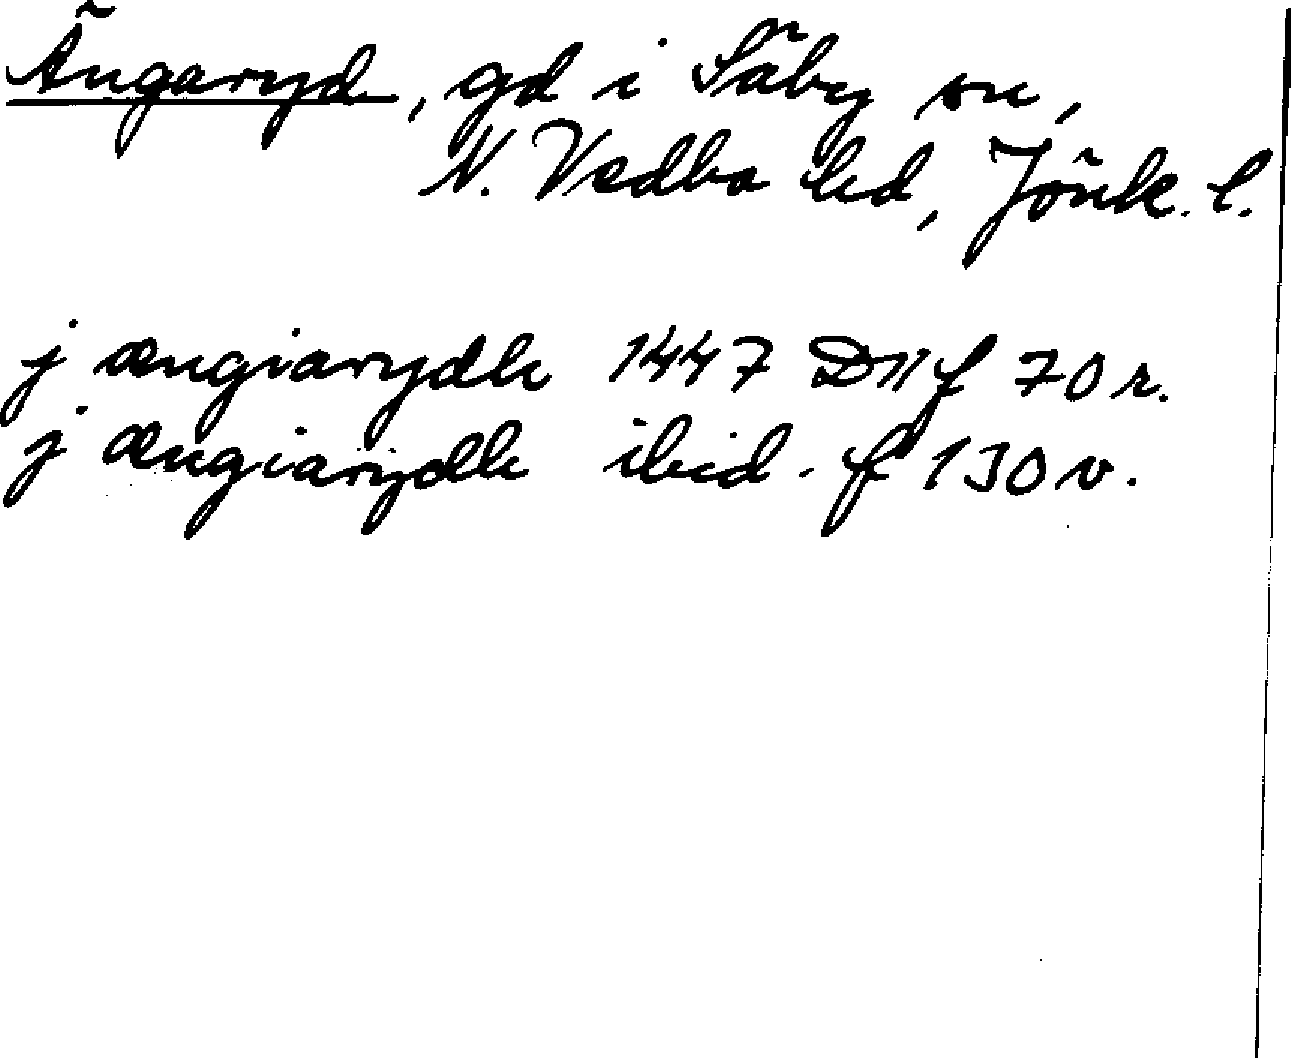 Ängaryd, gd i Säby sn,
N. Vedbo hd, Jönk. l.
j ængiarydh 1447 D11 f 70 r.
j ængiarydh ibid. f 130 v.